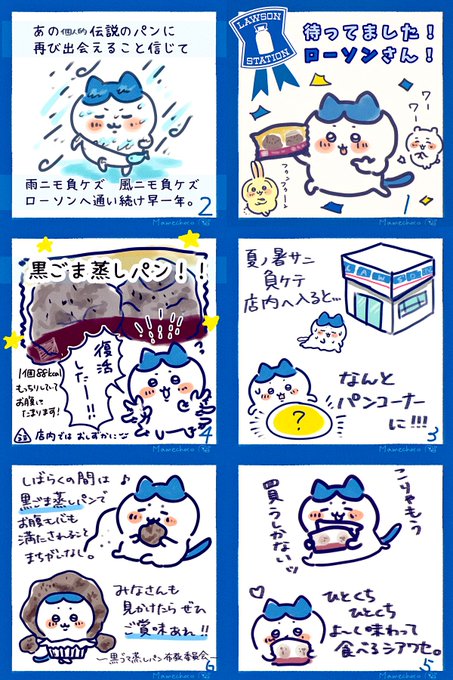 LAWSON
STATION
待ってました!
ローソンさん!
ワー
ワー
フゥンフゥーン
1
Mamechoco
あの個人的伝説のパンに
再び出会えること信じて
雨ニモ負ケズ 風ニモ負ケズ
ローソンへ通い続け早一年。
2
Mamechoco
夏ノ暑サニ
負ケテ
店内へ入ると…
LAWSON
?
なんと
パンコーナー
に!!!
3
Mamechoco
黒ごま蒸しパン!!
復活
したー!!
1個88kcal
もっちりしてて
お腹に
たまります!
店内ではおしずかに
4
Mamechoco
こりゃもう
買うしかないッ
ひとくち
ひとくち
よ〜く味わって
食べるシアワセ。
5
Mamechoco
しばらくの間は
黒ごま蒸しパンで
お腹も心も
満たされること
まちがいなし。
みなさんも
見かけたら ぜひ
ご賞味あれ!!
―黒ごま蒸しパン布教委員会―
6
Mamechoco